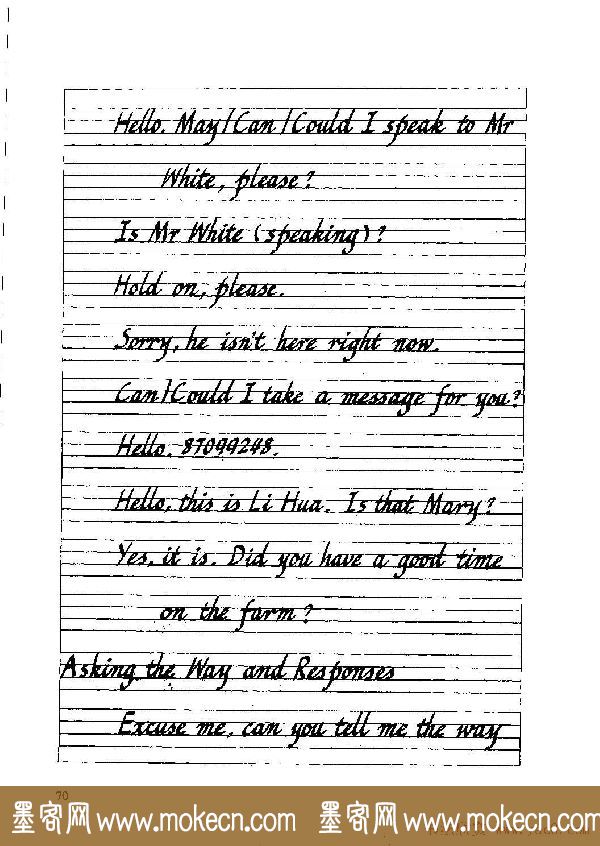 Hello. May/Can/Could I speak to Mr
White, please?
Is Mr White (speaking)?
Hold on, please.
Sorry, he isn't here right now.
Can/Could I take a message for you?
Hello. 87099248.
Hello, this is Li Hua. Is that Mary?
Yes, it is. Did you have a good time
on the farm?
Asking the Way and Responses
Excuse me, can you tell me the way
70
墨客网 www.mokecn.com 墨客网 www.mokecn.com